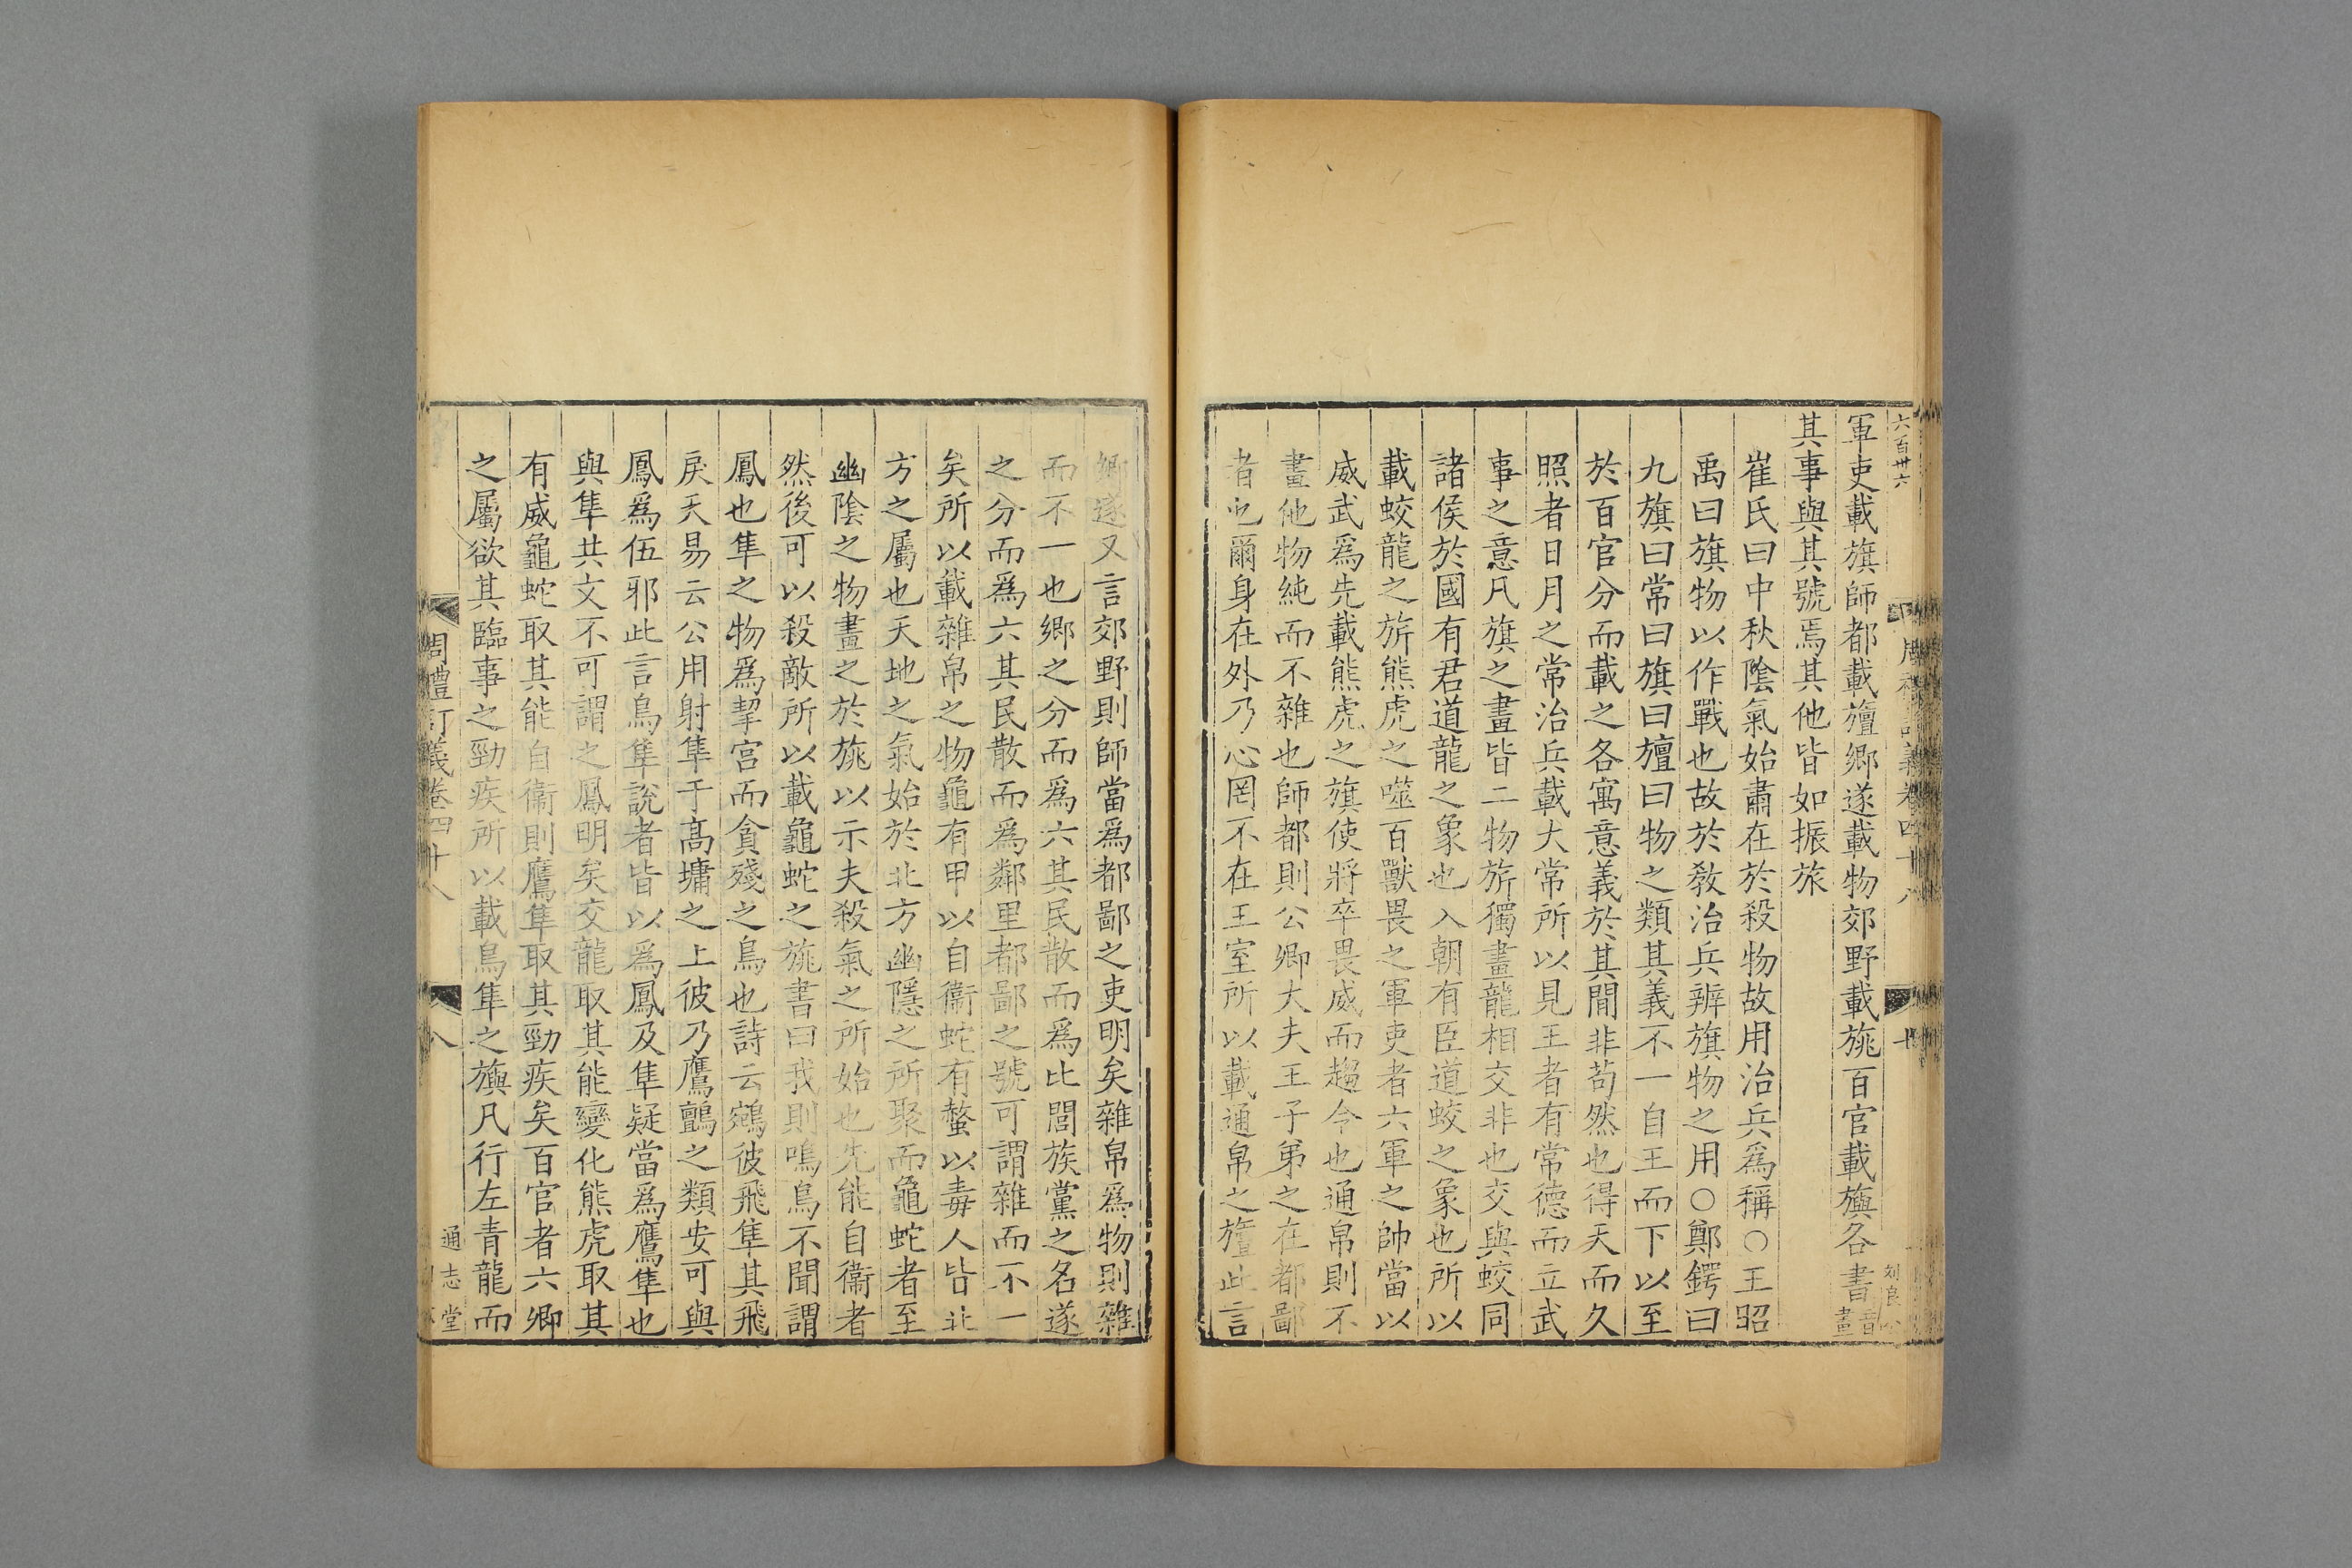 六百卅六
軍吏載旗師都載旜鄉遂載物郊野載旐百官載旟各書音畫
其事與其號焉其他皆如振旅
崔氏曰中秋陰氣始肅在於殺物故用治兵爲稱○王昭
禹曰旗物以作戰也故於敎治兵辨旗物之用○鄭鍔曰
九旗曰常曰旗曰旜曰物之類其義不一自王而下以至
於百官分而載之各寓意義於其間非苟然也得天而久
照者日月之常治兵載大常所以見王者有常德而立武
事之意凡旗之畫皆二物旂獨畫龍相交非也交與蛟同
諸侯於國有君道龍之象也入朝有臣道蛟之象也所以
載蛟龍之旂熊虎之噬百獸畏之軍吏者六軍之帥當以
威武爲先載熊虎之旗使將卒畏威而趨令也通帛則不
畫他物純而不雜也師都則公卿大夫王子弟之在都鄙
者也爾身在外乃心罔不在王室所以載通帛之旜此言
鄉遂又言郊野則師當爲都鄙之吏明矣雜帛爲物則雜
而不一也鄉之分而爲六其民散而爲比閭族黨之名遂
之分而爲六其民散而爲鄰里都鄙之號可謂雜而不一
矣所以載雜帛之物龜有甲以自衞蛇有螫以毒人皆北
方之屬也天地之氣始於北方幽隱之所聚而龜蛇者至
幽陰之物畫之於旐以示夫殺氣之所始也先能自衞者
然後可以殺敵所以載龜蛇之旐書曰我則鳴鳥不聞謂
鳳也隼之物爲挈宫而貪殘之鳥也詩云鴥彼飛隼其飛
戾天易云公用射隼于髙墉之上彼乃鷹鸇之類安可與
鳳爲伍邪此言鳥隼說者皆以爲鳳及隼疑當爲鷹隼也
與隼共文不可謂之鳳明矣交龍取其能變化熊虎取其
有威龜蛇取其能自衞則鷹隼取其勁疾矣百官者六卿
之屬欲其臨事之勁疾所以載鳥隼之旟凡行左青龍而
周禮訂義卷四十八
八
通志堂